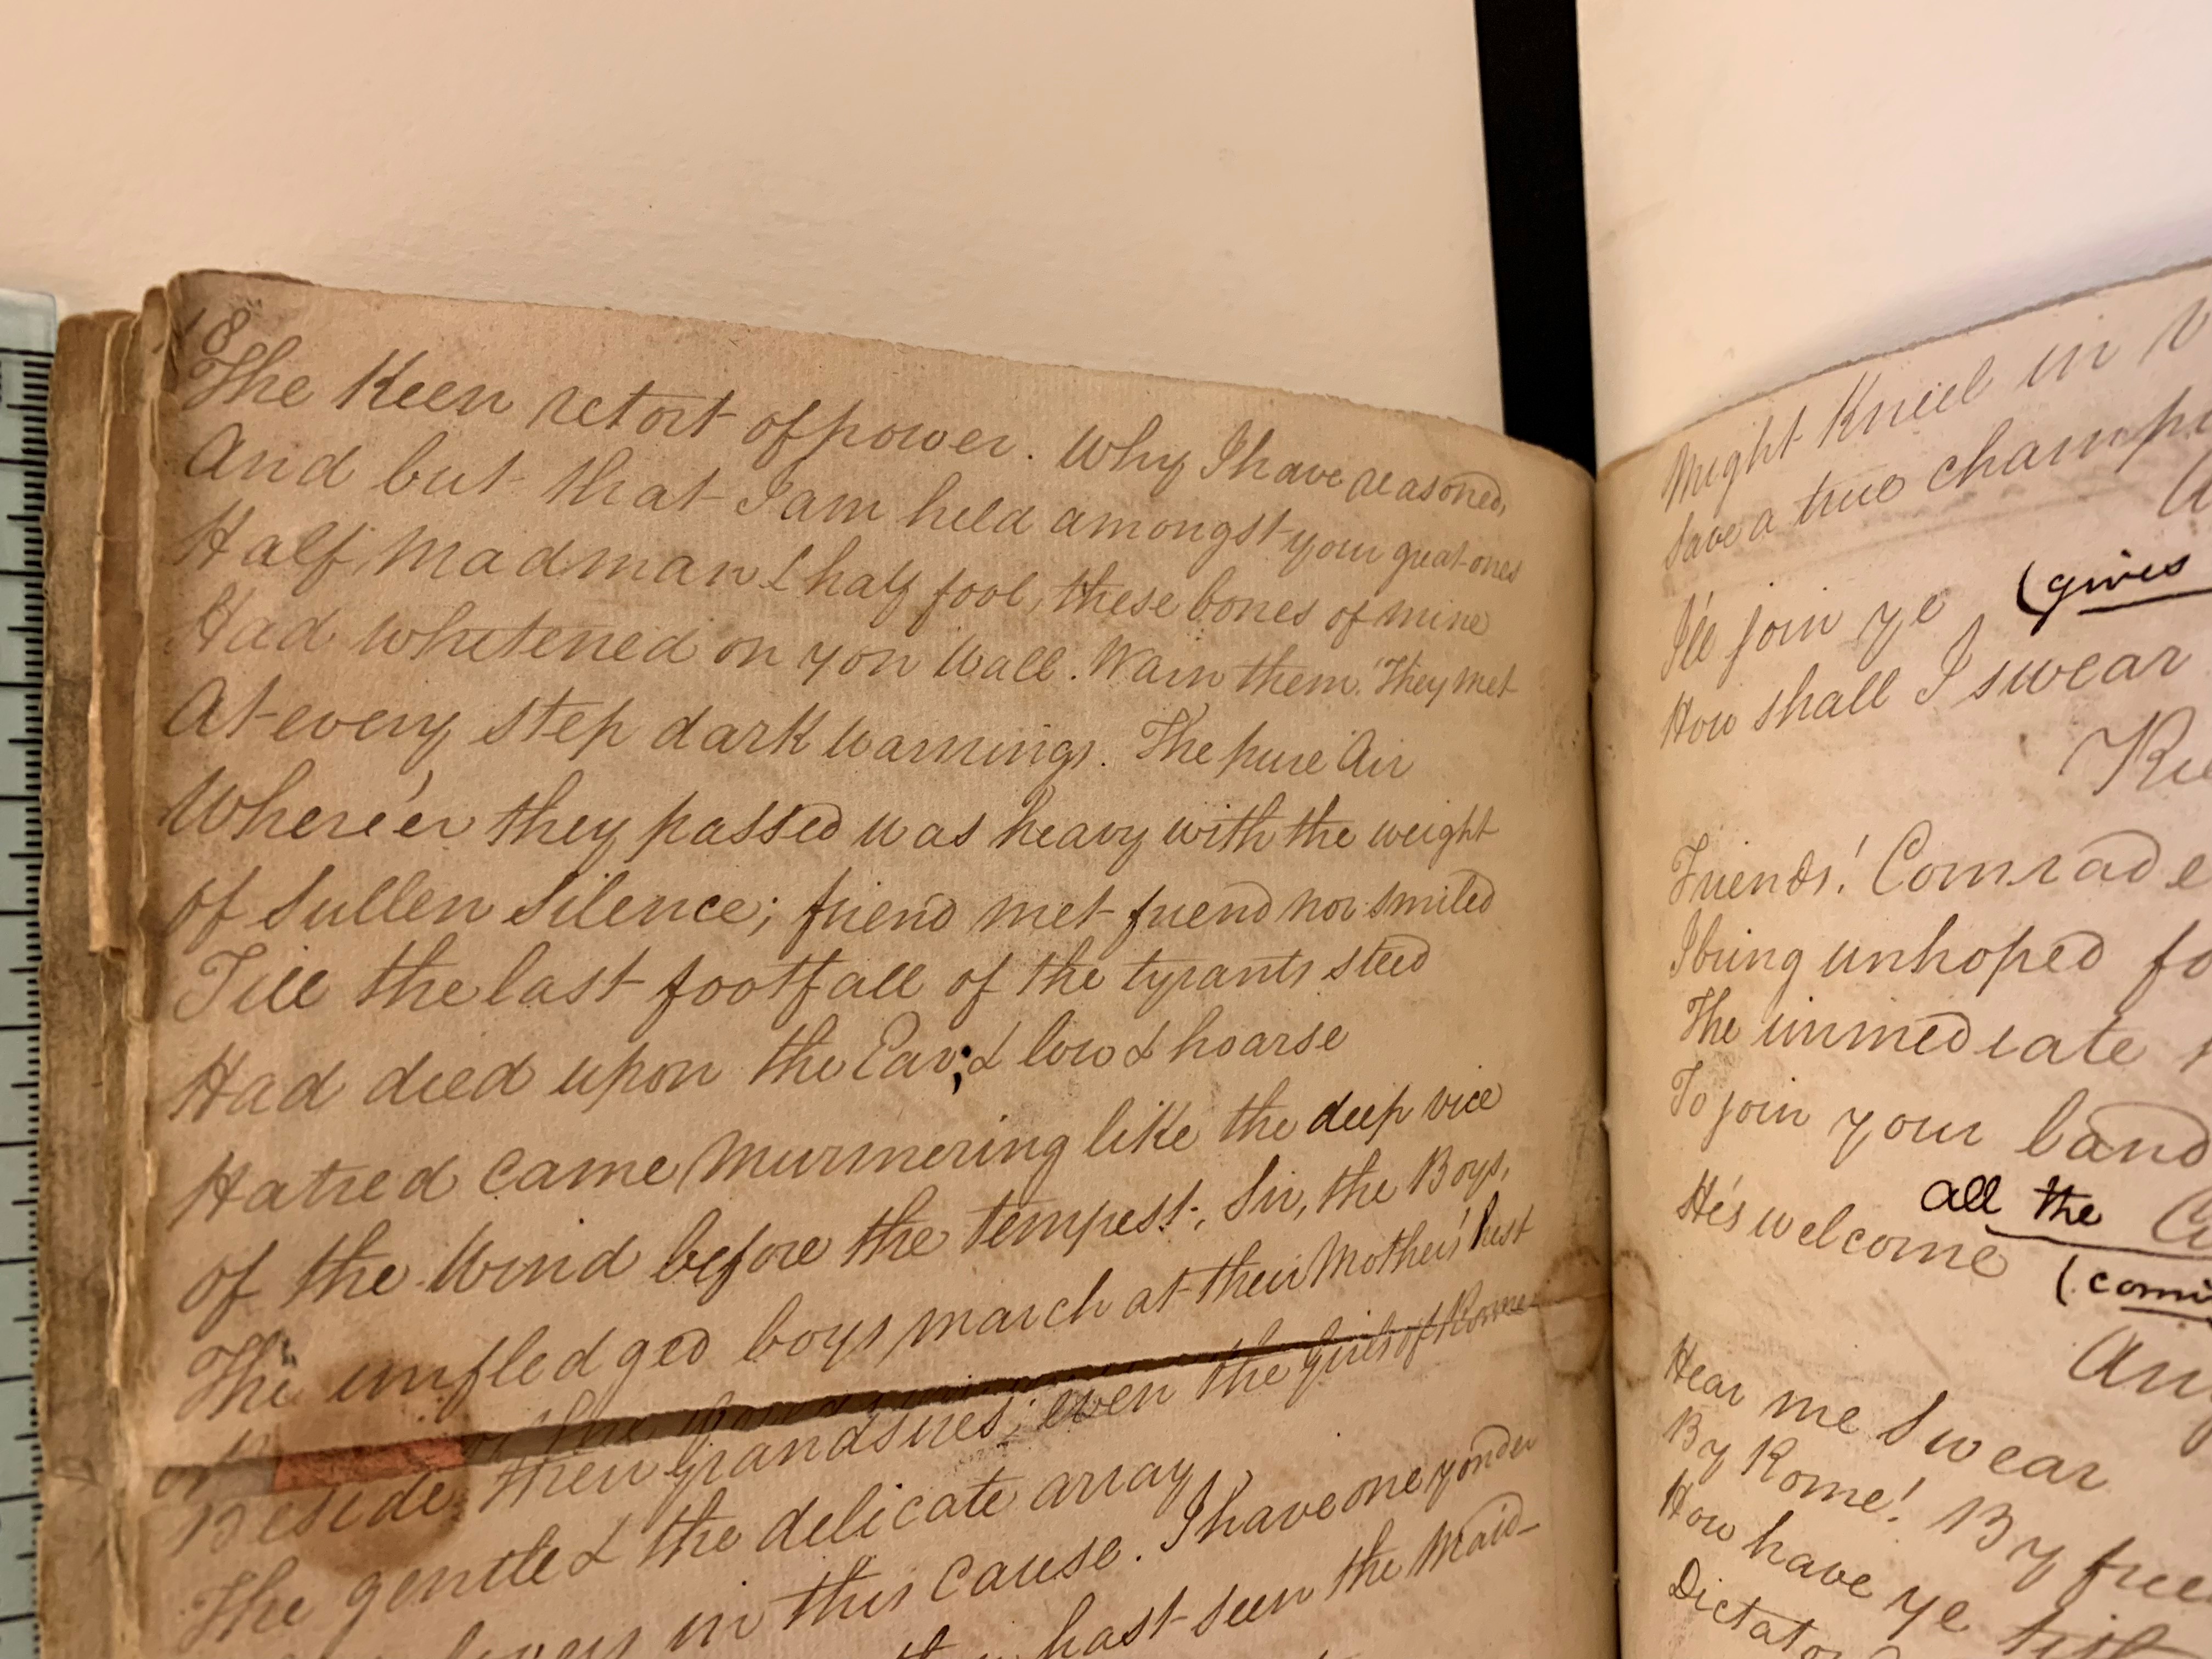 18
The Keen retort of power. Why I have reasoned,
And but that I am held amongst your great ones
Half Madman & half fool, these bones of mine
Had whitened on yon Wall. Warn them. They met
At every step dark warnings. The pure Air
Where'er they passed was heavy with the weight
Of Sullen Silence; friend met friend nor smiled
Till the last footfall of the tyrants steed
Had died upon the Ear; & low & hoarse
Hatred came Murmering like the deep vice
Of the Wind before the tempest; Sir, the Boys,
The unfledged boys march at their Mother's hest
Beside their Grandsires; even the Girls of Rome
The gentle & the delicate array
in this cause. I have one yonder
hast seen the Maid
Might Kneel in
Save a true
I'll join ye (gives
How shall I swear
Friends! Comrade
I bring unhoped
The immediate
To join your band
all the
He's welcome
Hear me Swear
By Rome! By free
How have ye